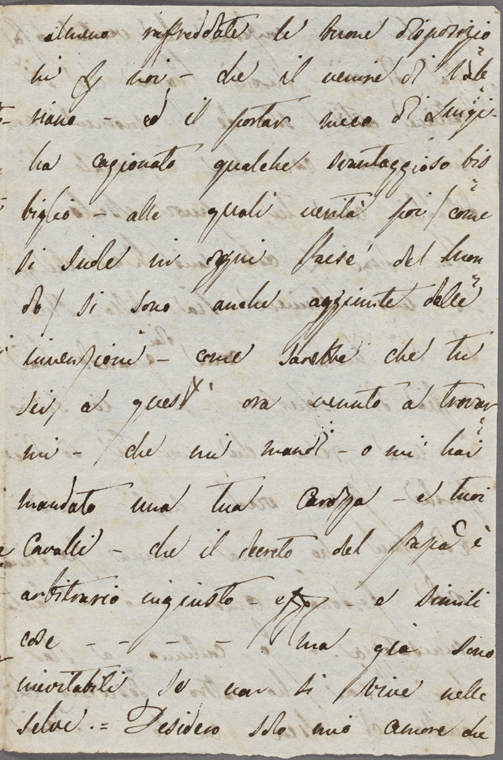 almeno raffreddate le buone disposizio
ni per noi - che il venire di Vale=
riano - ed il portar meco di Luigi
ha cagionato qualche svantaggioso bis=
biglio - alle quali verità poi / come
si suole in ogni Paese del Mon=
do / si sono anche aggiunte delle
invenzioni - come sarebbe che tu
sei a quest' ora venuto a trovar=
mi - che mi mandi - o mi hai
mandato una tua Carozza - e tuoi
Cavalli - che il decreto del Papa è
arbitrario ingiusto - e simili
cose - - - - ma già sono
inevitabili se non si vive nelle
selve. = Desidero solo mio amore che